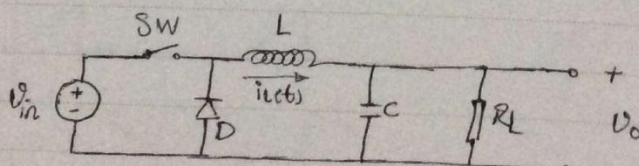 SW
L
+
-
vin
iL(t)
D
C
RL
+
vo